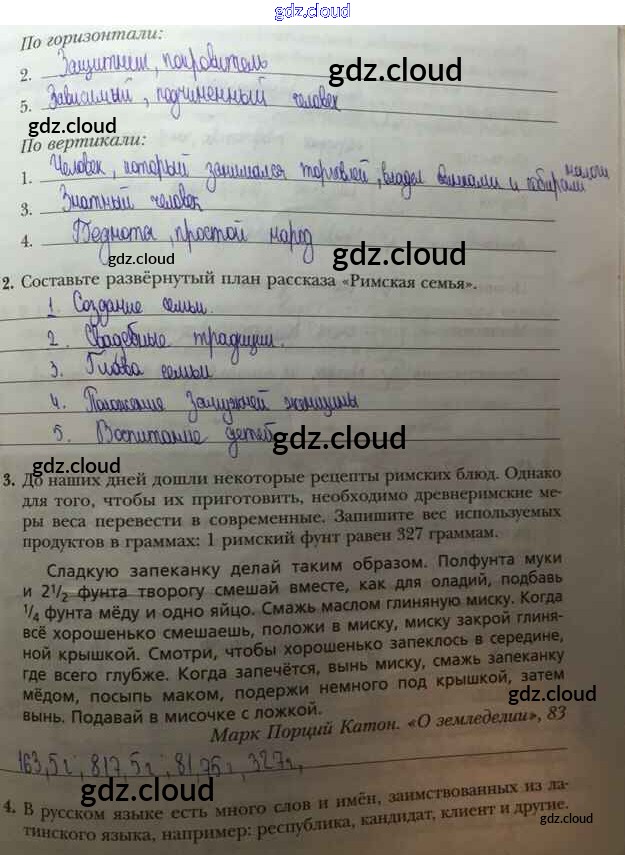 gdz.cloud
По горизонтали:
2. Защитник, покровитель
gdz.cloud
5. Зависимый, подчиненный человек
gdz.cloud
gdz.cloud
По вертикали:
1. Человек, который занимался торговлей, владел банками и собирали налоги
3. Знатный человек
gdz.cloud
4. Беднота, простой народ
gdz.cloud
2. Составьте развёрнутый план рассказа «Римская семья».
1. Создание семьи.
2. Свадебные традиции.
gdz.cloud
3. Глава семьи
4. Положение замужней женщины
5. Воспитание детей
gdz.cloud
gdz.cloud
3. До наших дней дошли некоторые рецепты римских блюд. Однако
для того, чтобы их приготовить, необходимо древнеримские ме-
ры веса перевести в современные. Запишите вес используемых
продуктов в граммах: 1 римский фунт равен 327 граммам.
Сладкую запеканку делай таким образом. Полфунта муки
и 2½ фунта творогу смешай вместе, как для оладий, подбавь
gdz.cloud
¼ фунта мёду и одно яйцо. Смажь маслом глиняную миску. Когда
всё хорошенько смешаешь, положи в миску, миску закрой глиня-
ной крышкой. Смотри, чтобы хорошенько запеклось в середине,
где всего глубже. Когда запечётся, вынь миску, смажь запеканку
мёдом, посыпь маком, подержи немного под крышкой, затем
gdz.cloud
вынь. Подавай в мисочке с ложкой.
gdz.cloud
Марк Порций Катон. «О земледелии», 83
163,5г; 817,5г; 81,75г; 327г,
gdz.cloud
4. В русском языке есть много слов и имён, заимствованных из ла-
тинского языка, например: республика, кандидат, клиент и другие.
gdz.cloud